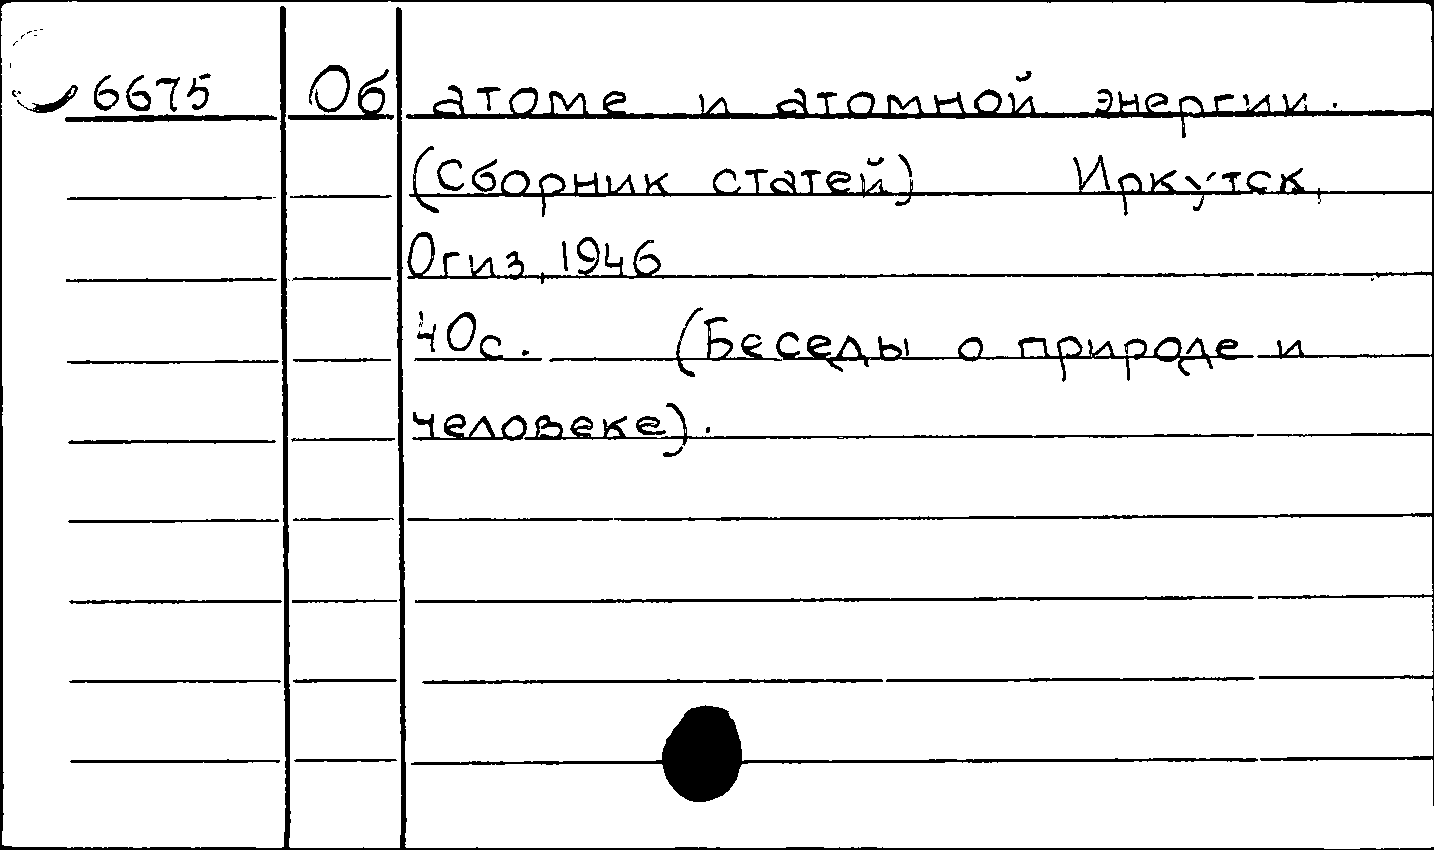 6675 Об атоме и атомной энергии.
(Сборник статей) Иркутск,
Огиз, 1946
40с. (Беседы о природе и
человеке).